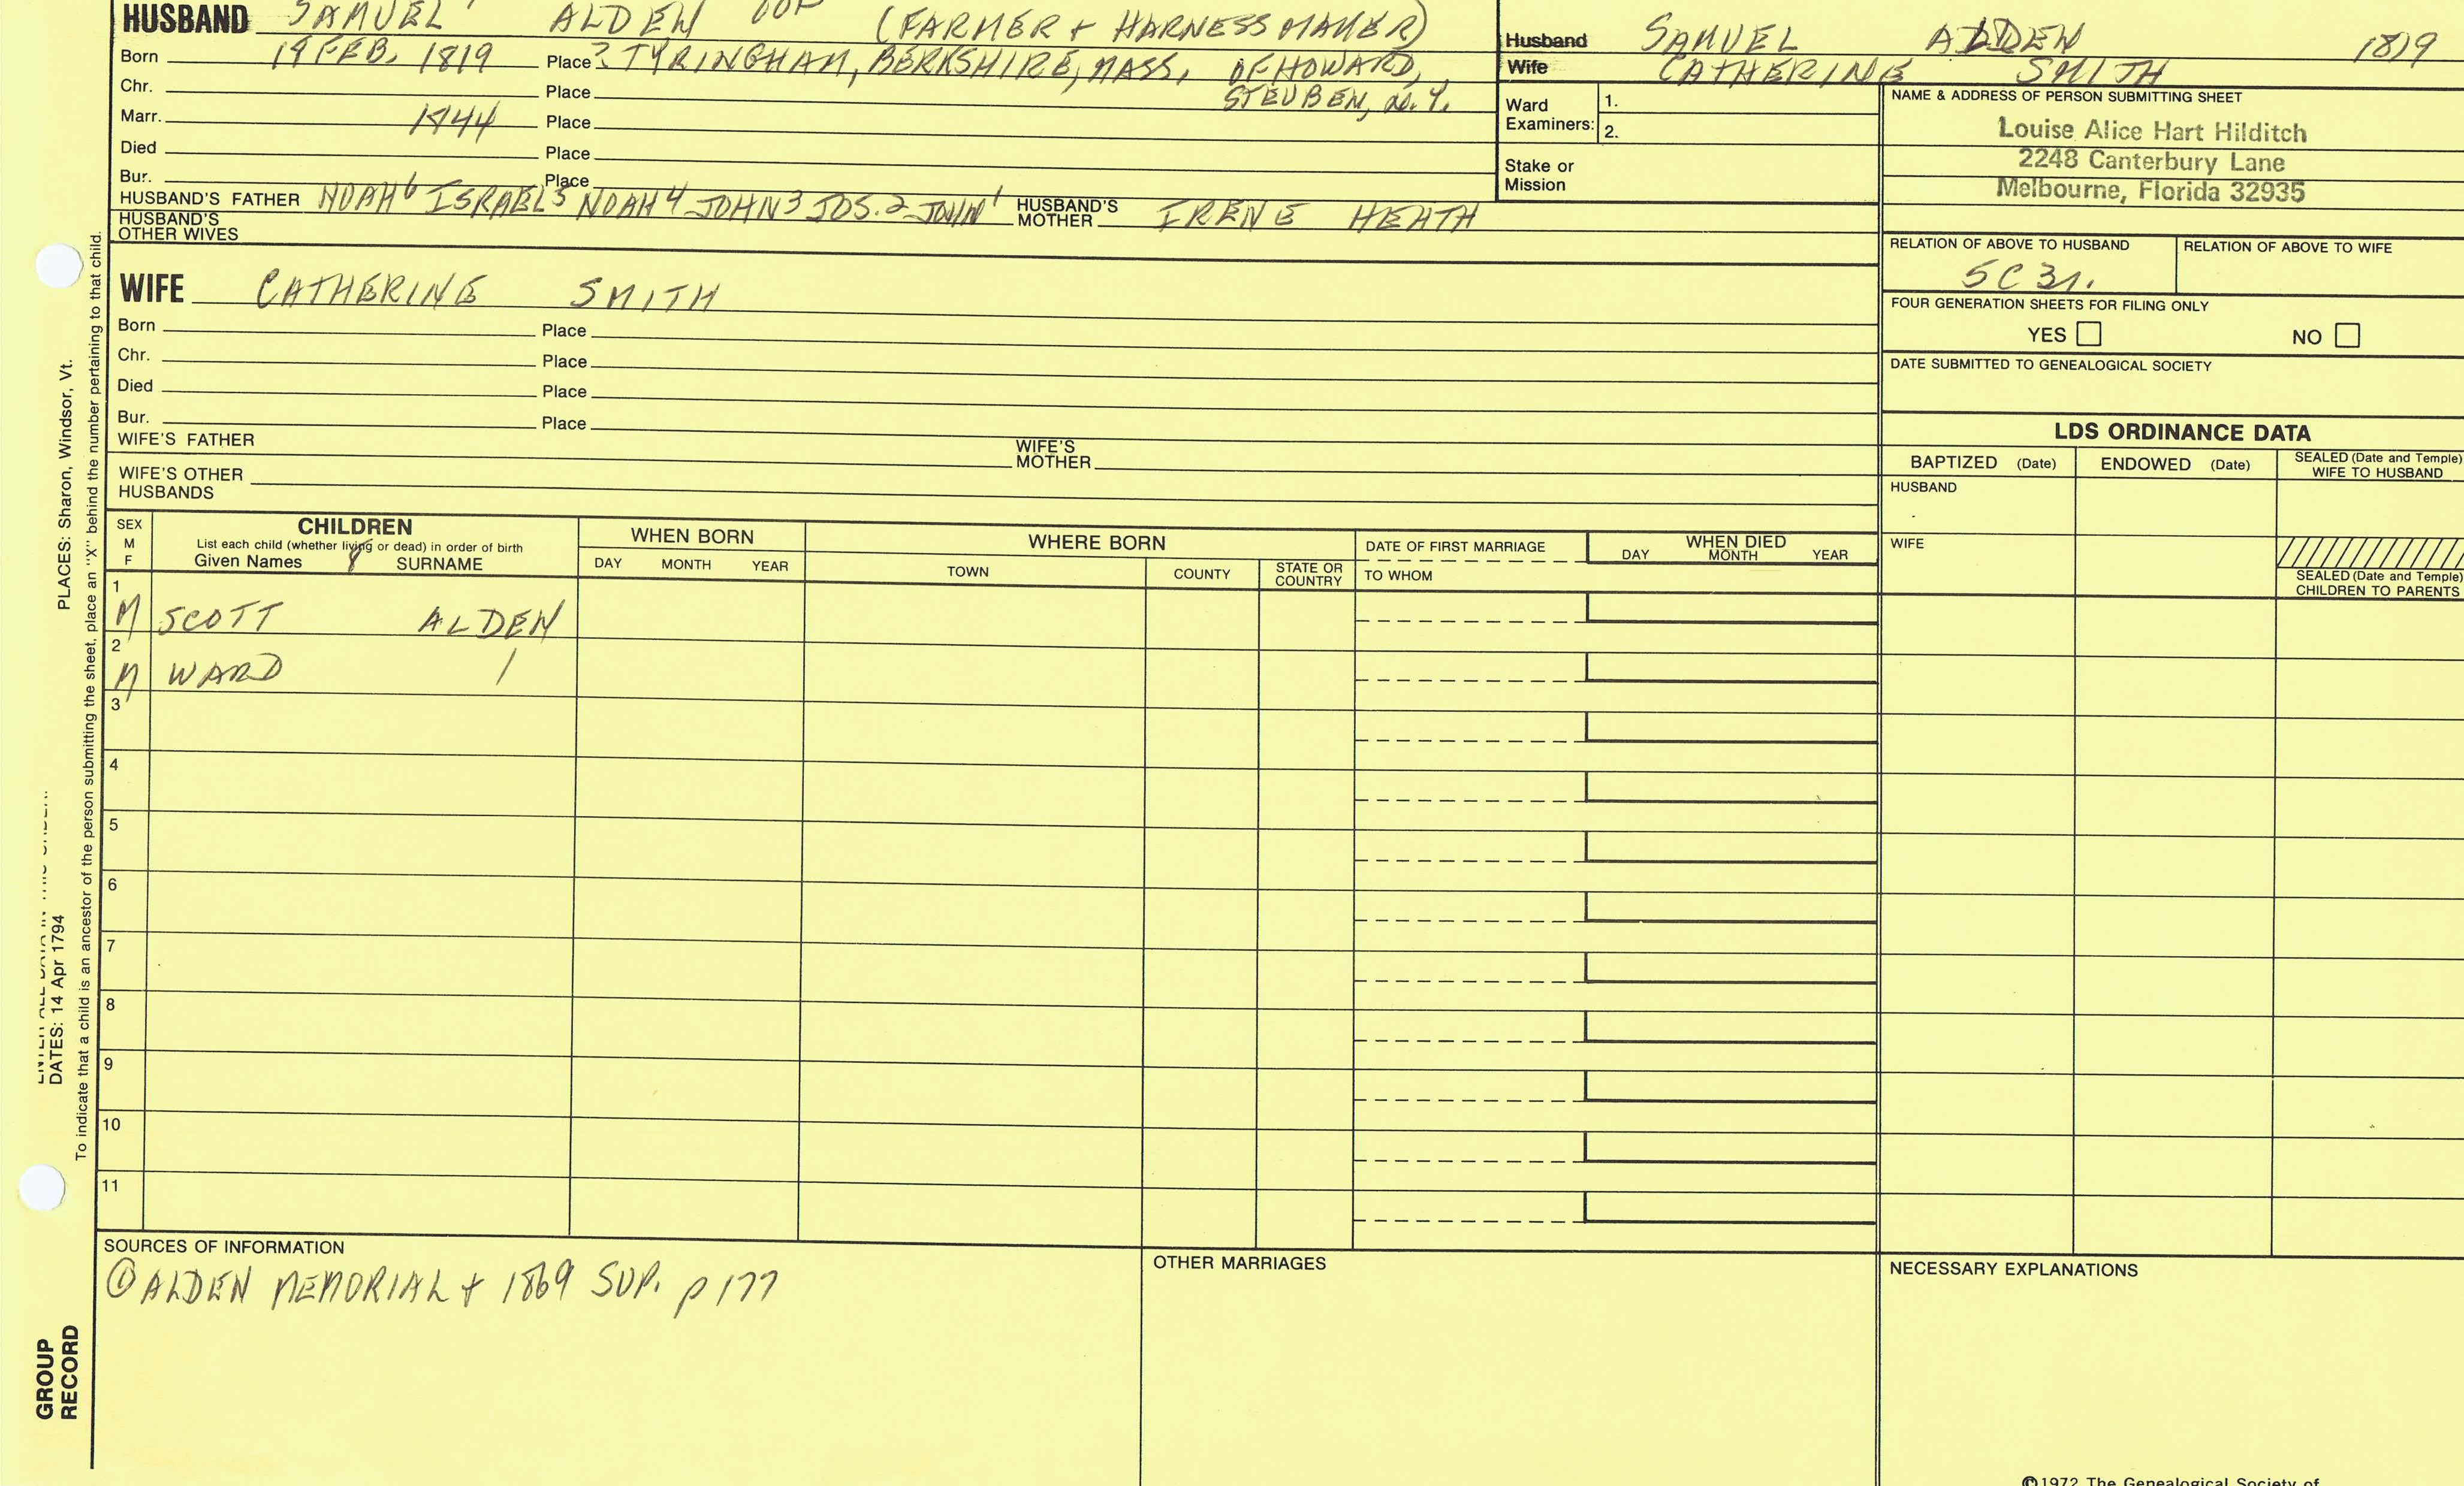 HUSBAND SAMUEL ALDEN (FARMER + HARNESS MAKER)
Born 19 FEB. 1819 Place ? TYRINGHAM, BERKSHIRE, MASS, OF HOWARD,
Chr. Place STEUBEN, N.Y.
Marr. 1844 Place
Died Place
Bur. Place
HUSBAND'S FATHER NOAH6 ISRAEL5 NOAH4 JOHN3 JOS.2 JOHN1 HUSBAND'S MOTHER IRENE HEATH
HUSBAND'S OTHER WIVES
Husband SAMUEL ALDEN 1819
Wife CATHERINE SMITH
Ward Examiners: 1.
2.
Stake or Mission
NAME & ADDRESS OF PERSON SUBMITTING SHEET
Louise Alice Hart Hilditch
2248 Canterbury Lane
Melbourne, Florida 32935
RELATION OF ABOVE TO HUSBAND RELATION OF ABOVE TO WIFE
5C3r.
FOUR GENERATION SHEETS FOR FILING ONLY
YES NO
DATE SUBMITTED TO GENEALOGICAL SOCIETY
WIFE CATHERINE SMITH
Born Place
Chr. Place
Died Place
Bur. Place
WIFE'S FATHER WIFE'S MOTHER
WIFE'S OTHER HUSBANDS
LDS ORDINANCE DATA
BAPTIZED (Date) ENDOWED (Date) SEALED (Date and Temple) WIFE TO HUSBAND
HUSBAND
WIFE
SEALED (Date and Temple) CHILDREN TO PARENTS
SEX M F
CHILDREN
List each child (whether living or dead) in order of birth
Given Names SURNAME
WHEN BORN
DAY MONTH YEAR
WHERE BORN
TOWN COUNTY STATE OR COUNTRY
DATE OF FIRST MARRIAGE
TO WHOM
WHEN DIED
DAY MONTH YEAR
1 M SCOTT ALDEN
2 M WARD
3
4
5
6
7
8
9
10
11
SOURCES OF INFORMATION
① ALDEN MEMORIAL + 1869 SUP. p 177
OTHER MARRIAGES
NECESSARY EXPLANATIONS
©1972 The Genealogical Society of
PLACES: Sharon, Windsor, Vt.
DATES: 14 Apr 1794
To indicate that a child is an ancestor of the person submitting the sheet, place an "X" behind the number pertaining to that child.
GROUP
RECORD